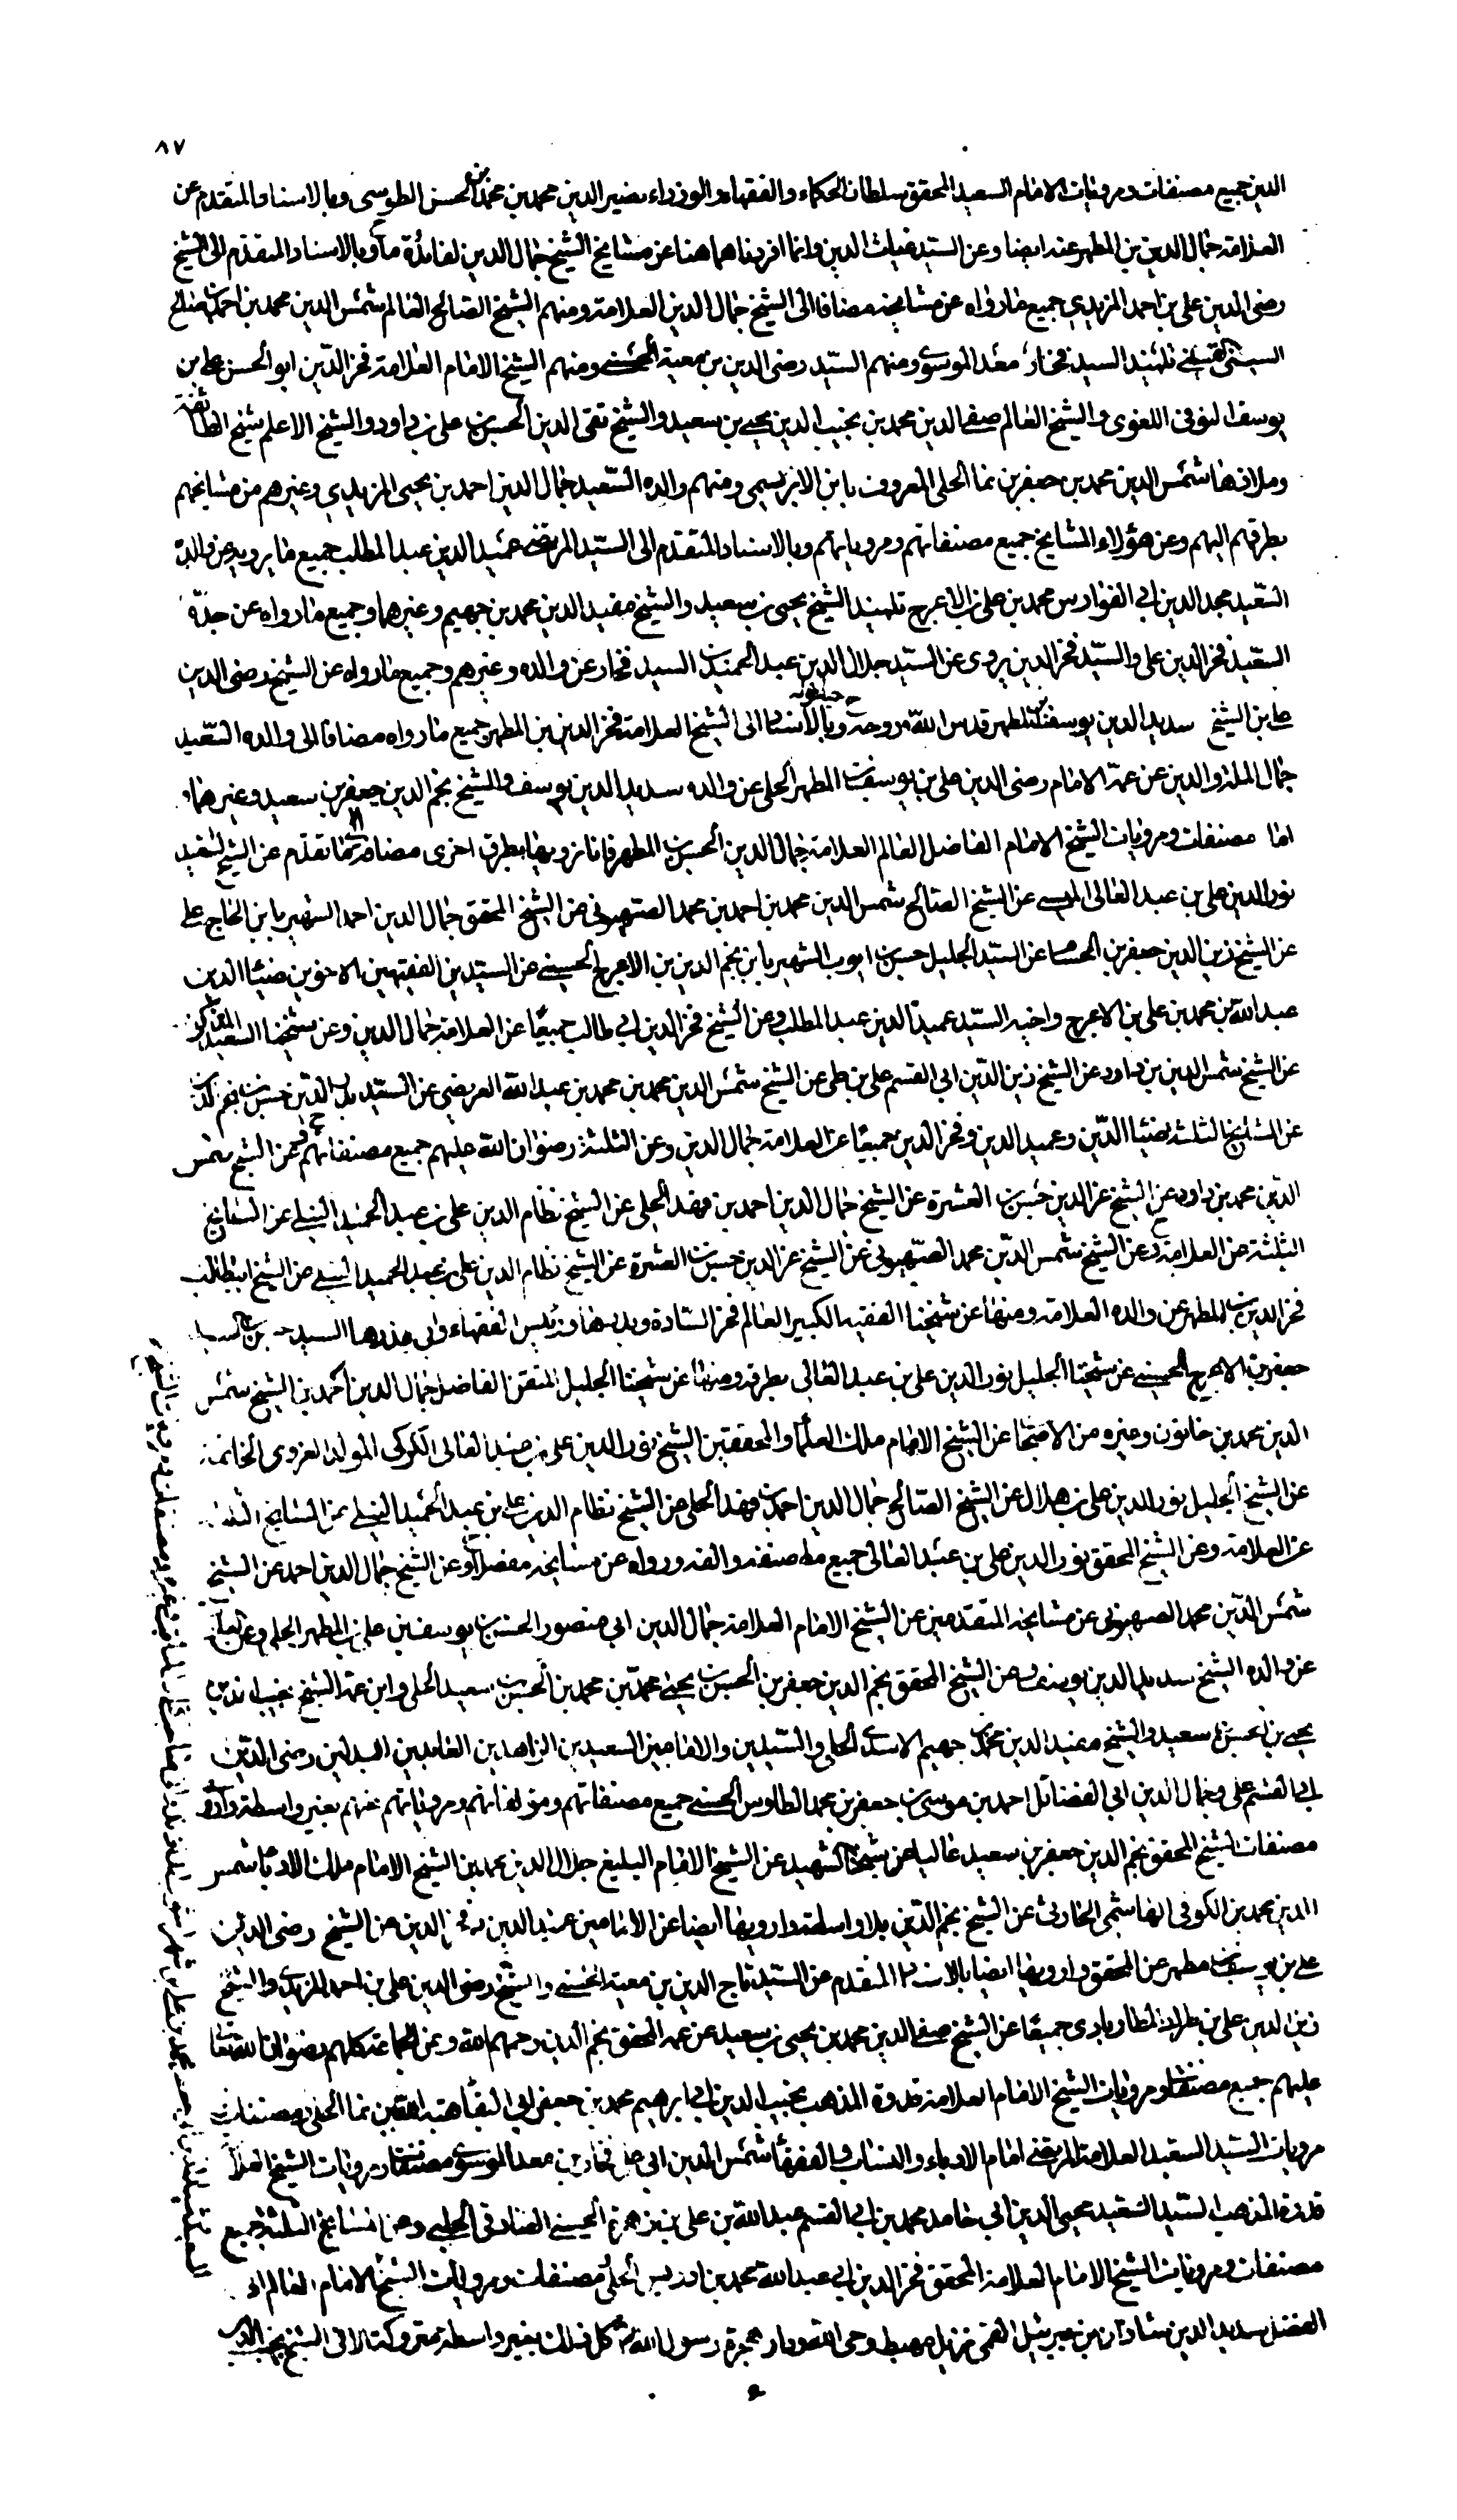 ٨٧
الدين جميع مصنفات ومرويات الامام السعيد المحقق سلطان الحكماء والفقهاء والوزراء نصير الدين محمد بن محمد بن الحسن الطوسي وبالاسناد المتقدم عن
العلامة جمال الدين بن المطهر عنه ايضا وعن السيد غياث الدين وانما افردناهما هنا عن مشايخ الشيخ جمال الدين لفائدة ما وبالاسناد المتقدم الى الشيخ
رضى الدين على بن احمد المزيدي جميع ما رواه عن مشايخه مضافا الى الشيخ جمال الدين العلامة ومنهم الشيخ الصالح العالم شمس الدين محمد بن احمد بن صالح
السيبى القسيني تلميذ السيد فخار بن معد الموسوي ومنهم السيد رضى الدين بن معية الحسني ومنهم الشيخ الامام العلامة فخر الدين ابو الحسن على بن
يوسف البوقى اللغوى والشيخ العالم صفى الدين محمد بن نجيب الدين يحيى بن سعيد والشيخ تقى الدين الحسن بن على بن داود والشيخ الاعلم شيخ الطائفة
وملاذها شمس الدين محمد بن جعفر بن نما الحلى المعروف بابن الابريسمى ومنهم والده السعيد جمال الدين احمد بن يحيى المزيدي وغيرهم من مشايخهم
بطرقهم اليهم وعن هؤلاء المشايخ جميع مصنفاتهم ومروياتهم وبالاسناد المتقدم الى السيد المرتضى عميد الدين عبد المطلب جميع ما يرويه عن والده
السعيد مجد الدين ابى الفوارس محمد بن على بن الاعرج تلميذ الشيخ يحيى بن سعيد والشيخ مفيد الدين محمد بن جهيم وغيرهما وجميع ما رواه عن جده
السعيد فخر الدين على والسيد فخر الدين يروى عن السيد جلال الدين عبد الحميد بن السيد فخار عن والده وغيرهم وجميع ما رواه عن الشيخ رضى الدين
على بن الشيخ سديد الدين يوسف بن المطهر قدس الله روحه وبالاسناد الى الشيخ العلامة فخر الدين بن المطهر جميع ما رواه مضافا الى والده السعيد
جمال الملة والدين عن عمه الامام رضى الدين على بن يوسف بن المطهر الحلى عن والده سديد الدين يوسف والشيخ نجم الدين جعفر بن سعيد وغيرهما و
اما مصنفات ومرويات الشيخ الامام الفاضل العالم العلامة جمال الدين الحسن بن المطهر فانا نرويها بطرق اخرى مضافة الى ما تقدم عن الشيخ السعيد
نور الدين على بن عبد العالى الميسى عن الشيخ الصالح شمس الدين محمد بن احمد بن محمد الصهيونى عن الشيخ المحقق جمال الدين احمد الشهير بابن الحاج على
عن الشيخ زين الدين جعفر بن الحسام عن السيد الجليل حسن بن ايوب الشهير بابن نجم الدين بن الاعرج الحسيني عن السيدين الفقيهين الاخوين ضياء الدين
عبد الله بن محمد بن على بن الاعرج واخيه السيد عميد الدين عبد المطلب وعن الشيخ فخر الدين ابى طالب جميعا عن العلامة جمال الدين وعن شيخنا السعيد المذكور
عن الشيخ شمس الدين بن داود عن الشيخ زين الدين ابى القسم على بن طى عن الشيخ شمس الدين محمد بن محمد بن عبد الله العريضى عن السيد بدر الدين حسن بن نجم الدين
عن المشايخ الثلثة ضياء الدين وعميد الدين وفخر الدين جميعا عن العلامة جمال الدين وعن الثلثة رضوان الله عليهم جميع مصنفاتهم وعن الشيخ شمس
الدين محمد بن داود عن الشيخ عز الدين حسن بن العشرة عن الشيخ جمال الدين احمد بن فهد الحلى عن الشيخ نظام الدين على بن عبد الحميد النيلى عن المشايخ
الثلثة عن العلامة وعن الشيخ شمس الدين محمد الصهيونى عن الشيخ عز الدين حسن بن العشرة عن الشيخ نظام الدين على بن عبد الحميد النيلى عن الشيخ ابيطالب
فخر الدين بن المطهر عن والده العلامة ومنها عن شيخنا الفقيه الكبير العالم فخر السادة وبدرها ورئيس الفقهاء وابى عذرها السيد حسن بن السيد
جعفر بن الاعرج الحسيني عن شيخنا الجليل نور الدين على بن عبد العالى بطرقه ومنها عن شيخنا الجليل المتقن الفاضل جمال الدين احمد بن الشيخ شمس
الدين محمد بن خاتون وغيره من الاصحاب عن الشيخ الامام ملك العلماء والمحققين الشيخ نور الدين على بن عبد العالى الكركى المولد الغروى الخاتمة
عن الشيخ الجليل نور الدين على بن هلال عن الشيخ الصالح جمال الدين احمد بن فهد الحلى عن الشيخ نظام الدين على بن عبد الحميد النيلى عن المشايخ الثلثة
عن العلامة وعن الشيخ المحقق نور الدين على بن عبد العالى جميع ما صنفه والفه ورواه عن مشايخه مفصلا وعن الشيخ جمال الدين احمد عن الشيخ
شمس الدين محمد الصهيونى عن مشايخه المتقدمين عن الشيخ الامام العلامة جمال الدين ابى منصور الحسن بن يوسف بن على بن المطهر الحلى
عن والده الشيخ سديد الدين يوسف وعن الشيخ المحقق نجم الدين جعفر بن الحسن بن يحيى بن سعيد الحلى وابن عمه الشيخ نجيب الدين
يحيى بن احمد بن سعيد والشيخ مفيد الدين محمد بن جهيم الاسدى الحلى والسيدين والامامين السعيدين الزاهدين العابدين البدلين رضى الدين
ابى القسم على وجمال الدين ابى الفضائل احمد بن موسى بن جعفر بن محمد الطاوس الحسنى جميع مصنفاتهم ومؤلفاتهم ومروياتهم عنهم بغير واسطة واروى
مصنفات الشيخ المحقق نجم الدين جعفر بن سعيد عاليا عن شيخنا الشهيد عن الشيخ الامام البليغ جلال الدين محمد بن الشيخ الامام ملك الادباء شمس
الدين محمد بن الكوفى الهاشمى الحارثى عن الشيخ نجم الدين بلا واسطة وارويها ايضا عن الامامين عميد الدين وفخر الدين عن الشيخ رضى الدين
على بن يوسف بن مطهر عن المحقق وارويها ايضا بالاسناد المتقدم عن السيد تاج الدين بن معية الحسنى والشيخ رضى الدين على بن احمد المزيدى والشيخ
زين الدين على بن طراد المطاربادى جميعا عن الشيخ صفى الدين محمد بن يحيى بن سعيد عن عمه المحقق نجم الدين رحمهم الله وعن الجماعة كلهم رضوان الله تعالى
عليهم جميع مصنفات ومرويات الشيخ الامام العلامة قدوة المذهب نجيب الدين ابى ابراهيم محمد بن جعفر بن ابى البقاء هبة الله بن نما الحلى ومصنفات
مرويات السيد السعيد العلامة المرتضى امام الادباء والنساب والفقهاء شمس الدين ابى على فخار بن معد الموسوى ومصنفات ومرويات الشيخ العلامة
قدوة المذهب السيد السعيد محيى الدين ابى حامد محمد بن ابى القسم عبد الله بن على بن زهرة الحسينى الصادقى الحلبى وعن المشايخ الثلثة جميع
مصنفات ومرويات الشيخ الامام العلامة المحقق فخر الدين ابى عبد الله محمد بن ادريس الحلى ومصنفات ومرويات الشيخ الامام العالم ابى
الفضل سديد الدين شاذان بن جبرئيل القمى نزيل مهبط وحى الله ودار هجرة رسول الله كل ذلك بغير واسطة متروكة الا فى الشيخ نجيب الدين